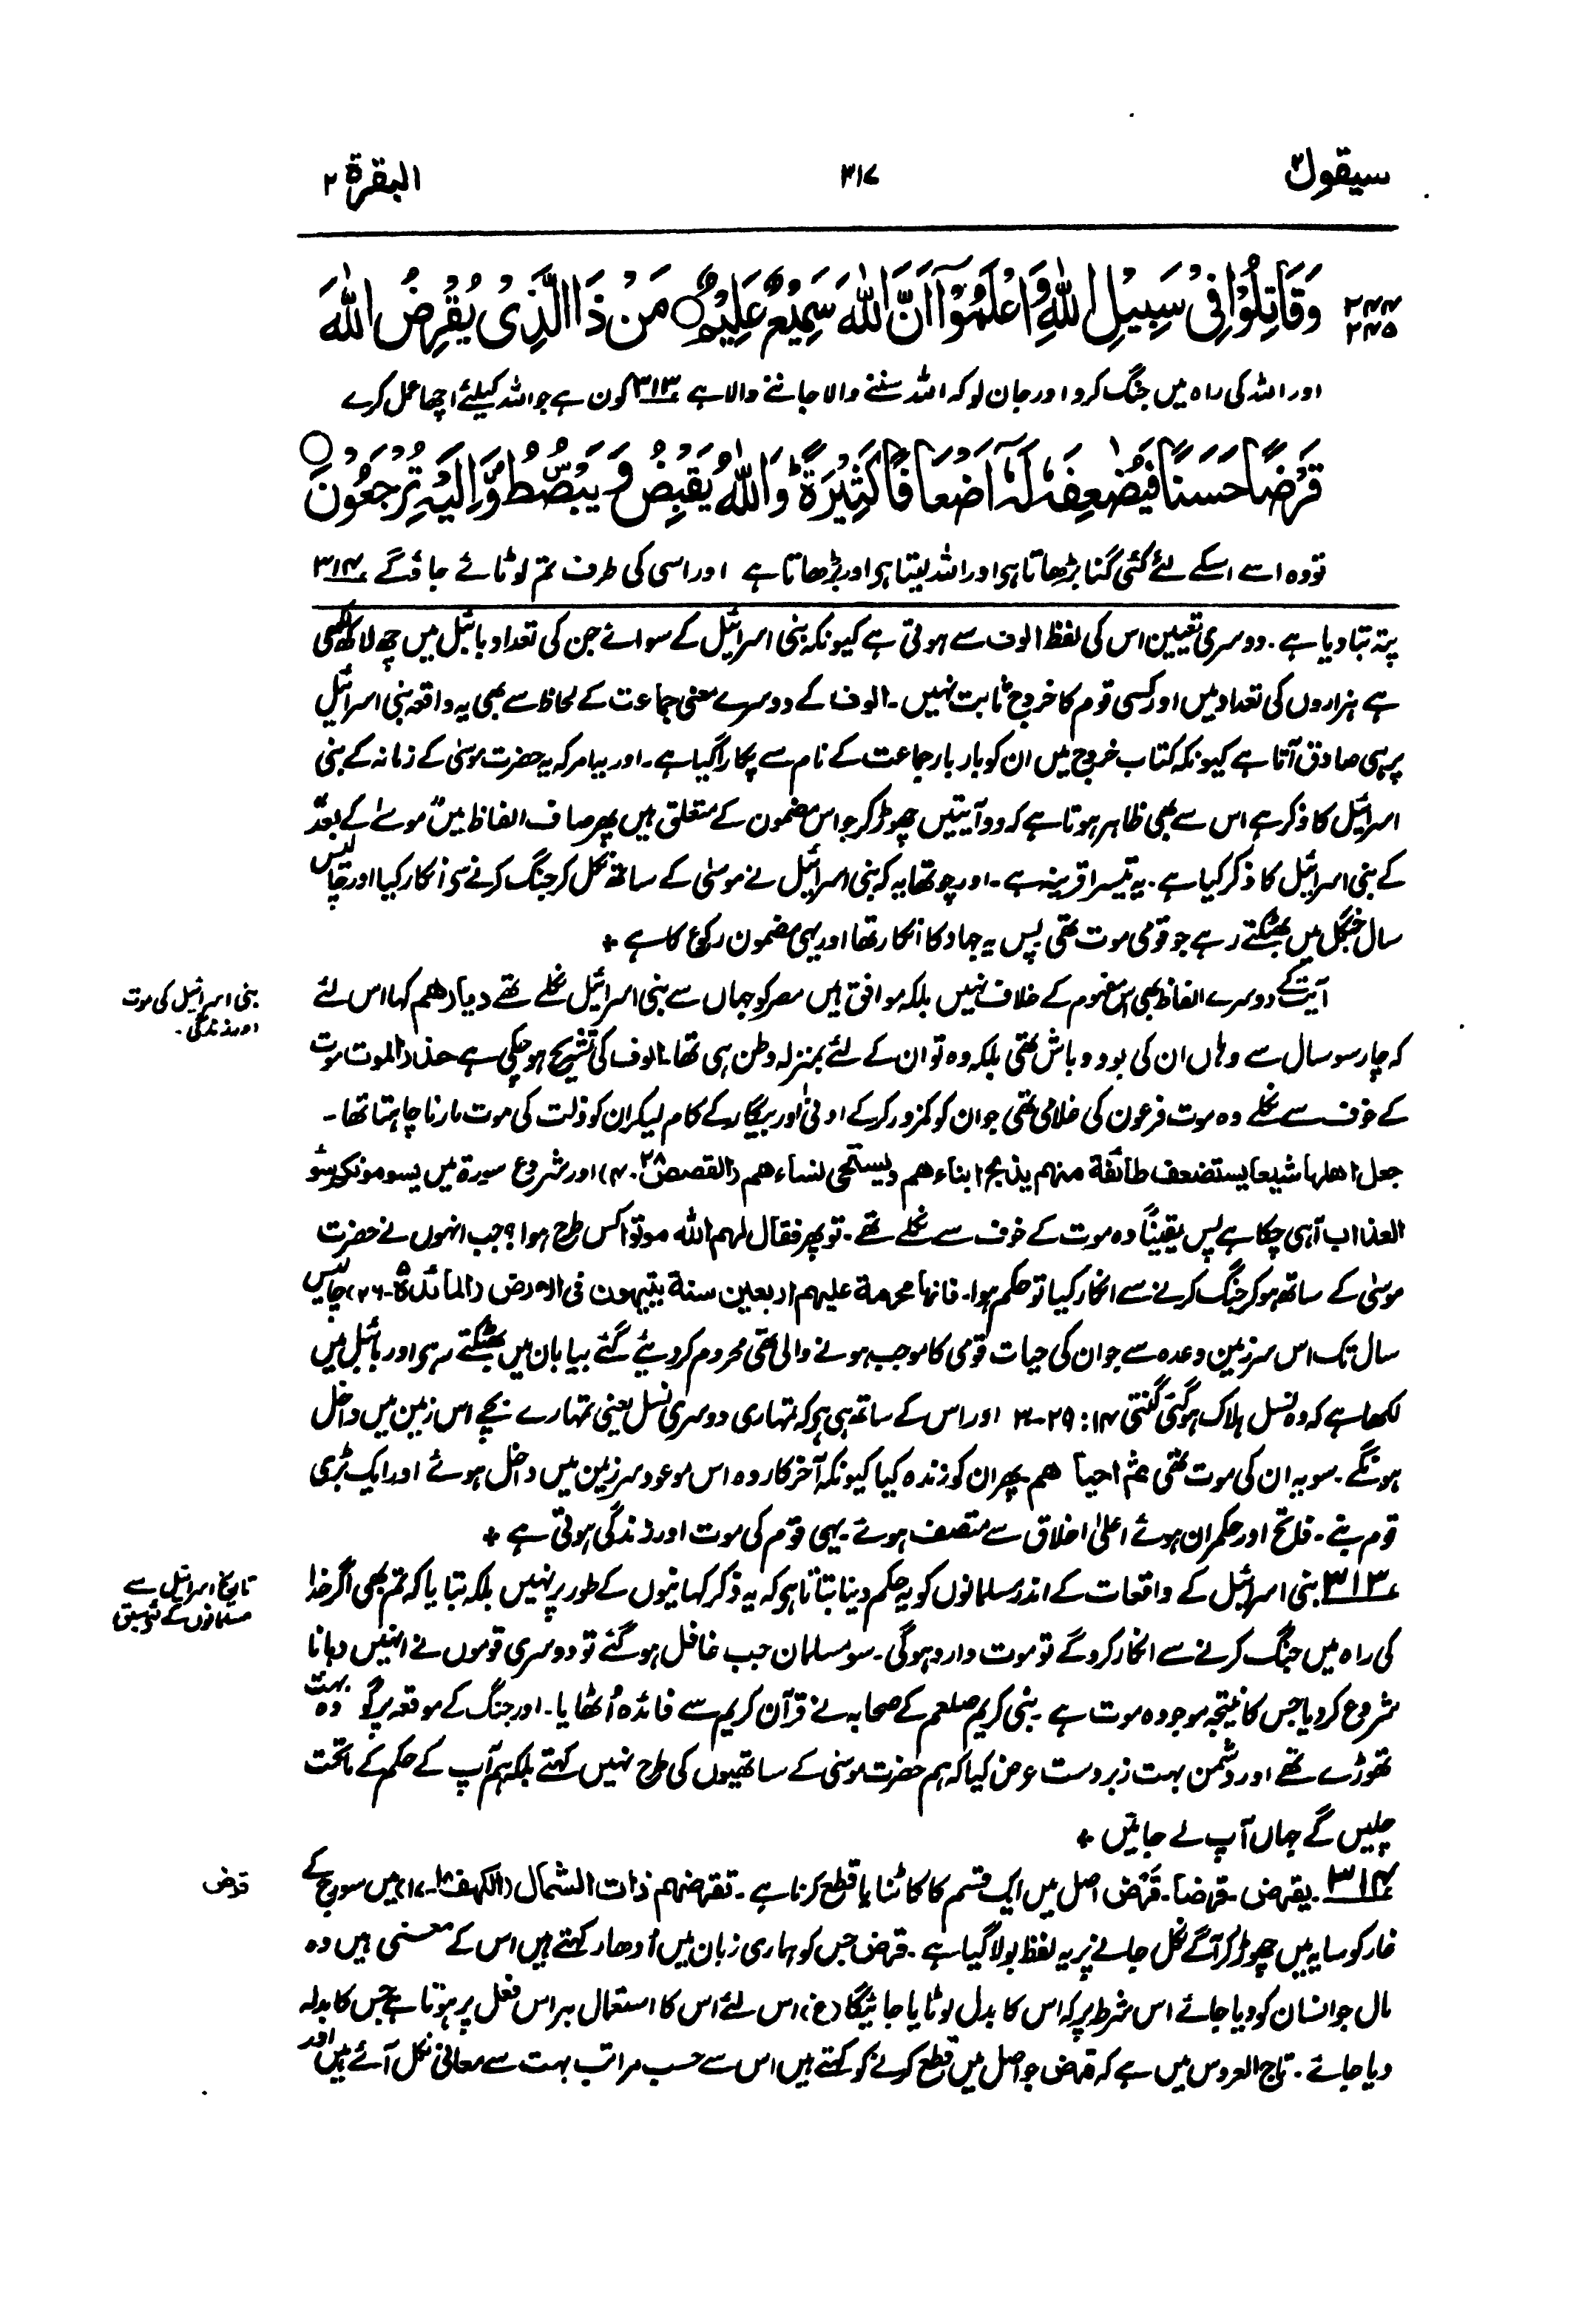 سیقول ۲
۳۱۷
البقرۃ ۲
۲۴۴
۲۴۵
وَقَاتِلُوْا فِیْ سَبِیْلِ اللّٰهِ وَاعْلَمُوْۤا اَنَّ اللّٰهَ سَمِیْعٌ عَلِیْمٌ ○ مَنْ ذَا الَّذِیْ یُقْرِضُ اللّٰهَ
اور اللہ کی راہ میں جنگ کرو اور جان لو کہ اللہ سننے والا جاننے والا ہے ۳۱۳ کون ہے جو اللہ کیلئے اچھا عمل کرے
قَرْضًا حَسَنًا فَیُضٰعِفَهٗ لَهٗۤ اَضْعَافًا كَثِیْرَةً ؕ وَاللّٰهُ یَقْبِضُ وَ یَبْصُۜطُ وَّاِلَیْهِ تُرْجَعُوْنَ ○
تو وہ اسے اسکے لئے کئی گنا بڑھاتا ہی اور اللہ لیتا ہی اور بڑھاتا ہے اور اسی کی طرف تم لوٹائے جاؤ گے ۳۱۴
پتہ بتا دیا ہے۔ دوسری تعیین اس کی لفظ الوف سے ہوتی ہے کیونکہ بنی اسرائیل کے سوائے جن کی تعداد بائبل میں چھ لاکھ لکھی
ہے ہزاروں کی تعداد میں اور کسی قوم کا خروج ثابت نہیں۔ الوف کے دوسرے معنی جماعت کے لحاظ سے بھی یہ واقعہ بنی اسرائیل
پر ہی صادق آتا ہے کیونکہ کتاب خروج میں ان کو بار بار جماعت کے نام سے پکارا گیا ہے۔ اور یہ امر کہ یہ حضرت موسیٰ کے زمانہ کے بنی
اسرائیل کا ذکر ہے اس سے بھی ظاہر ہوتا ہے کہ دو آیتیں چھوڑ کر جو اس مضمون کے متعلق ہیں پھر صاف الفاظ میں "موسیٰ کے بعد"
کے بنی اسرائیل کا ذکر کیا ہے۔ یہ تیسرا قرینہ ہے۔ اور چوتھا یہ کہ بنی اسرائیل نے موسیٰ کے ساتھ نکل کر جنگ کرنے سے انکار کیا اور چالیس
سال جنگل میں بھٹکتے رہے جو قومی موت تھی پس یہ جہاد کا انکار تھا اور یہی مضمون رکوع کا ہے +
بنی اسرائیل کی موت
اور زندگی۔
آیت کے دوسرے الفاظ بھی اس مفہوم کے خلاف نہیں بلکہ موافق ہیں مصر کو جہاں سے بنی اسرائیل نکلے تھے دیارھم کہا اس لئے
کہ چار سو سال سے وہاں ان کی بود و باش تھی بلکہ وہ تو ان کے لئے بمنزلہ وطن ہی تھا۔ الوف کی تشریح ہو چکی ہے حذرالموت موت
کے خوف سے نکلے وہ موت فرعون کی غلامی تھی جو ان کو کمزور کرکے ادنیٰ اور بیگار کے کام لیکر ان کو ذلت کی موت مارنا چاہتا تھا۔
جعل اھلہا شیعا یستضعف طائفۃ منہم یذبح ابناءھم ویستحی نساءھم (القصص ۲۸۔۴) اور شروع سورۃ میں یسومونکم سوٓء
العذاب آہی چکا ہے پس یقیناً وہ موت کے خوف سے نکلے تھے۔ تو پھر فقال لہم اللہ موتوا کس طرح ہوا؟ جب انہوں نے حضرت
موسیٰ کے ساتھ ہو کر جنگ کرنے سے انکار کیا تو حکم ہوا۔ فانہا محرمۃ علیہم اربعین سنۃ یتیہون فی الارض (المائدۃ ۵۔۲۶) چالیس
سال تک اس سرزمین وعدہ سے جو ان کی حیات قومی کا موجب ہونے والی تھی محروم کر دیئے گئے بیابان میں بھٹکتے رہی اور بائبل میں
لکھا ہے کہ وہ نسل ہلاک ہو گئی گنتی ۱۴: ۲۹۔۳۰ اور اس کے ساتھ ہی ہی کہ تمہاری دوسری نسل یعنی تمہارے بچے اس زمین میں داخل
ہونگے۔ سو یہ ان کی موت تھی ثم احیاھم پھر ان کو زندہ کیا کیونکہ آخرکار وہ اس موعود سرزمین میں داخل ہوئے اور ایک بڑی
قوم بنے۔ فاتح اور حکمران ہوئے اعلیٰ اخلاق سے متصف ہوئے۔ یہی قوم کی موت اور زندگی ہوتی ہے +
تاریخ اسرائیل سے
مسلمانوں کے لئے سبق
۳۱۳ بنی اسرائیل کے واقعات کے اندر مسلمانوں کو یہ حکم دینا بتاتا ہی کہ یہ ذکر کہانیوں کے طور پر نہیں بلکہ بتایا کہ تم بھی اگر خدا
کی راہ میں جنگ کرنے سے انکار کرو گے تو موت وارد ہوگی۔ سو مسلمان جب غافل ہو گئے تو دوسری قوموں نے انہیں دبانا
شروع کر دیا جس کا نتیجہ موجودہ موت ہے۔ نبی کریم صلعم کے صحابہ نے قرآن کریم سے فائدہ اُٹھایا۔ اور جنگ کے موقعہ پر گو وہ بہت
تھوڑے تھے اور دشمن بہت زبردست عرض کیا کہ ہم حضرت موسیٰ کے ساتھیوں کی طرح نہیں کہتے بلکہ ہم آپ کے حکم کے ماتحت
چلیں گے جہاں آپ لے جائیں +
قرض
۳۱۴ یقرض۔ قرضا۔ قَرْض اصل میں ایک قسم کا کاٹنا یا قطع کرنا ہے۔ تقرضہم ذات الشمال (الکہف ۱۸۔۱۷) میں سورج کے
غار کو سایہ میں چھوڑ کر آگے نکل جانے پر یہ لفظ بولا گیا ہے۔ قرض جس کو ہماری زبان میں اُدھار کہتے ہیں اس کے معنی ہیں وہ
مال جو انسان کو دیا جائے اس شرط پر کہ اس کا بدل لوٹایا جائیگا (غ) اس لئے اس کا استعمال ہر اس فعل پر ہوتا ہے جس کا بدلہ
دیا جائے۔ تاج العروس میں ہے کہ قرض جو اصل میں قطع کرنے کو کہتے ہیں اس سے حسب مراتب بہت سے معانی نکل آئے ہیں اور